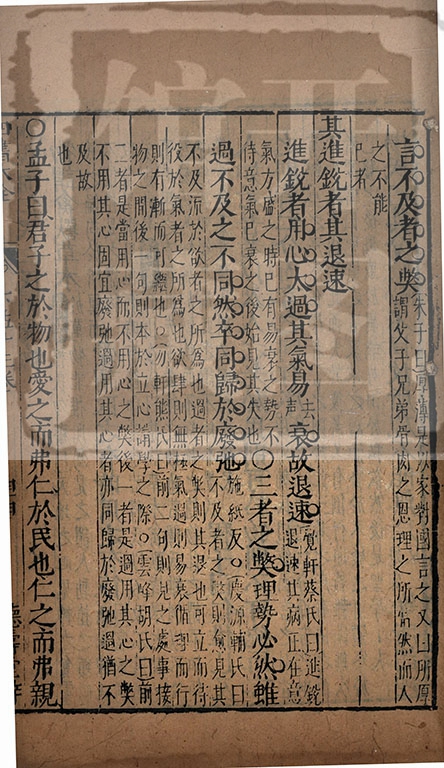 言不及者之弊朱子曰厚薄是以家對國言之又曰所厚
謂父子兄弟骨肉之恩理之所當然而人
之不能
已者
其進銳者其退速
進銳者用心太過其氣易去聲衰故退速覺軒蔡氏曰進銳
退速其病正在意
氣方盛之時已有易衰之勢不
待意氣已衰之後始見其失也〇三者之弊理勢必然雖
過不及之不同然卒同歸於廢弛施紙反〇慶源輔氏曰
不及者之失則愈見其
不及流於欲者之所為也過者之弊則其退也可立而待
役於氣者之所為也欲肆則無極氣過則易衰循理而行
則有漸而可繼也〇勿軒熊氏曰前二句則見之處事接
物之間後一句則本於立心講學之際〇雲峰胡氏曰前
二者是當用心而不用心之弊後一者是過用其心之弊
不用其心固宜廢弛過用其心者亦同歸於廢弛過猶不
及故
也
〇孟子曰君子之於物也愛之而弗仁於民也仁之而弗親